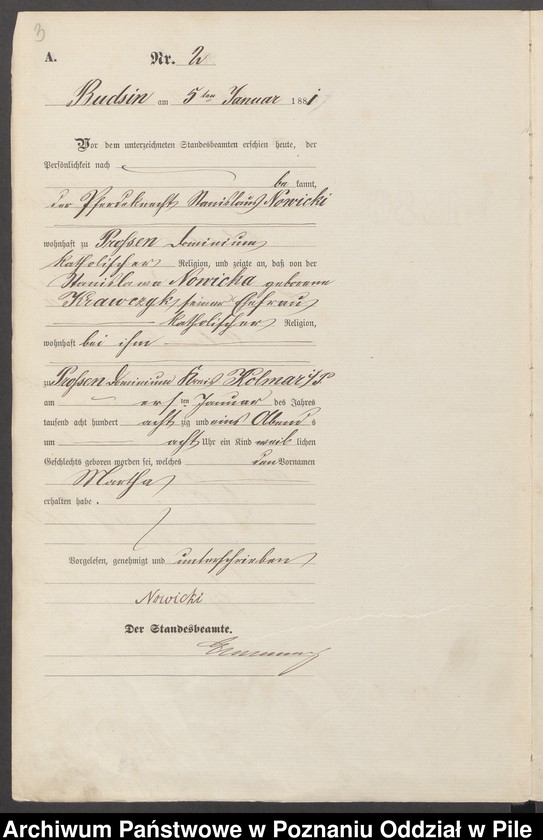 3
A. Nr. 2
Budsin am 5ten Januar 1881
Vor dem unterzeichneten Standesbeamten erschien heute, der
Persönlichkeit nach
be kannt,
der Pferdeknecht Stanislaus Nowicki
wohnhaft zu Prossen Dominium
katholischer Religion, und zeigte an, daß von der
Stanislawa Nowicka geborene
Krawczyk, seiner Ehefrau
katholischer Religion,
wohnhaft bei ihm
zu Prossen Dominium Kreis Kolmar i/P
am ersten Januar des Jahres
tausend acht hundert achtzig und eins Abends
um acht Uhr ein Kind weiblichen
Geschlechts geboren worden sei, welches den Vornamen
Martha
erhalten habe.
Vorgelesen, genehmigt und unterschrieben
Nowicki
Der Standesbeamte.
Archiwum Państwowe w Poznaniu Oddział w Pile